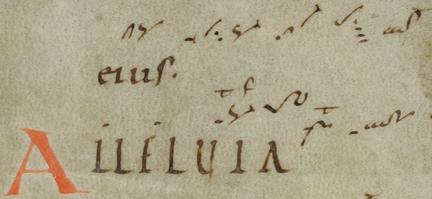 eius.
Alleluia